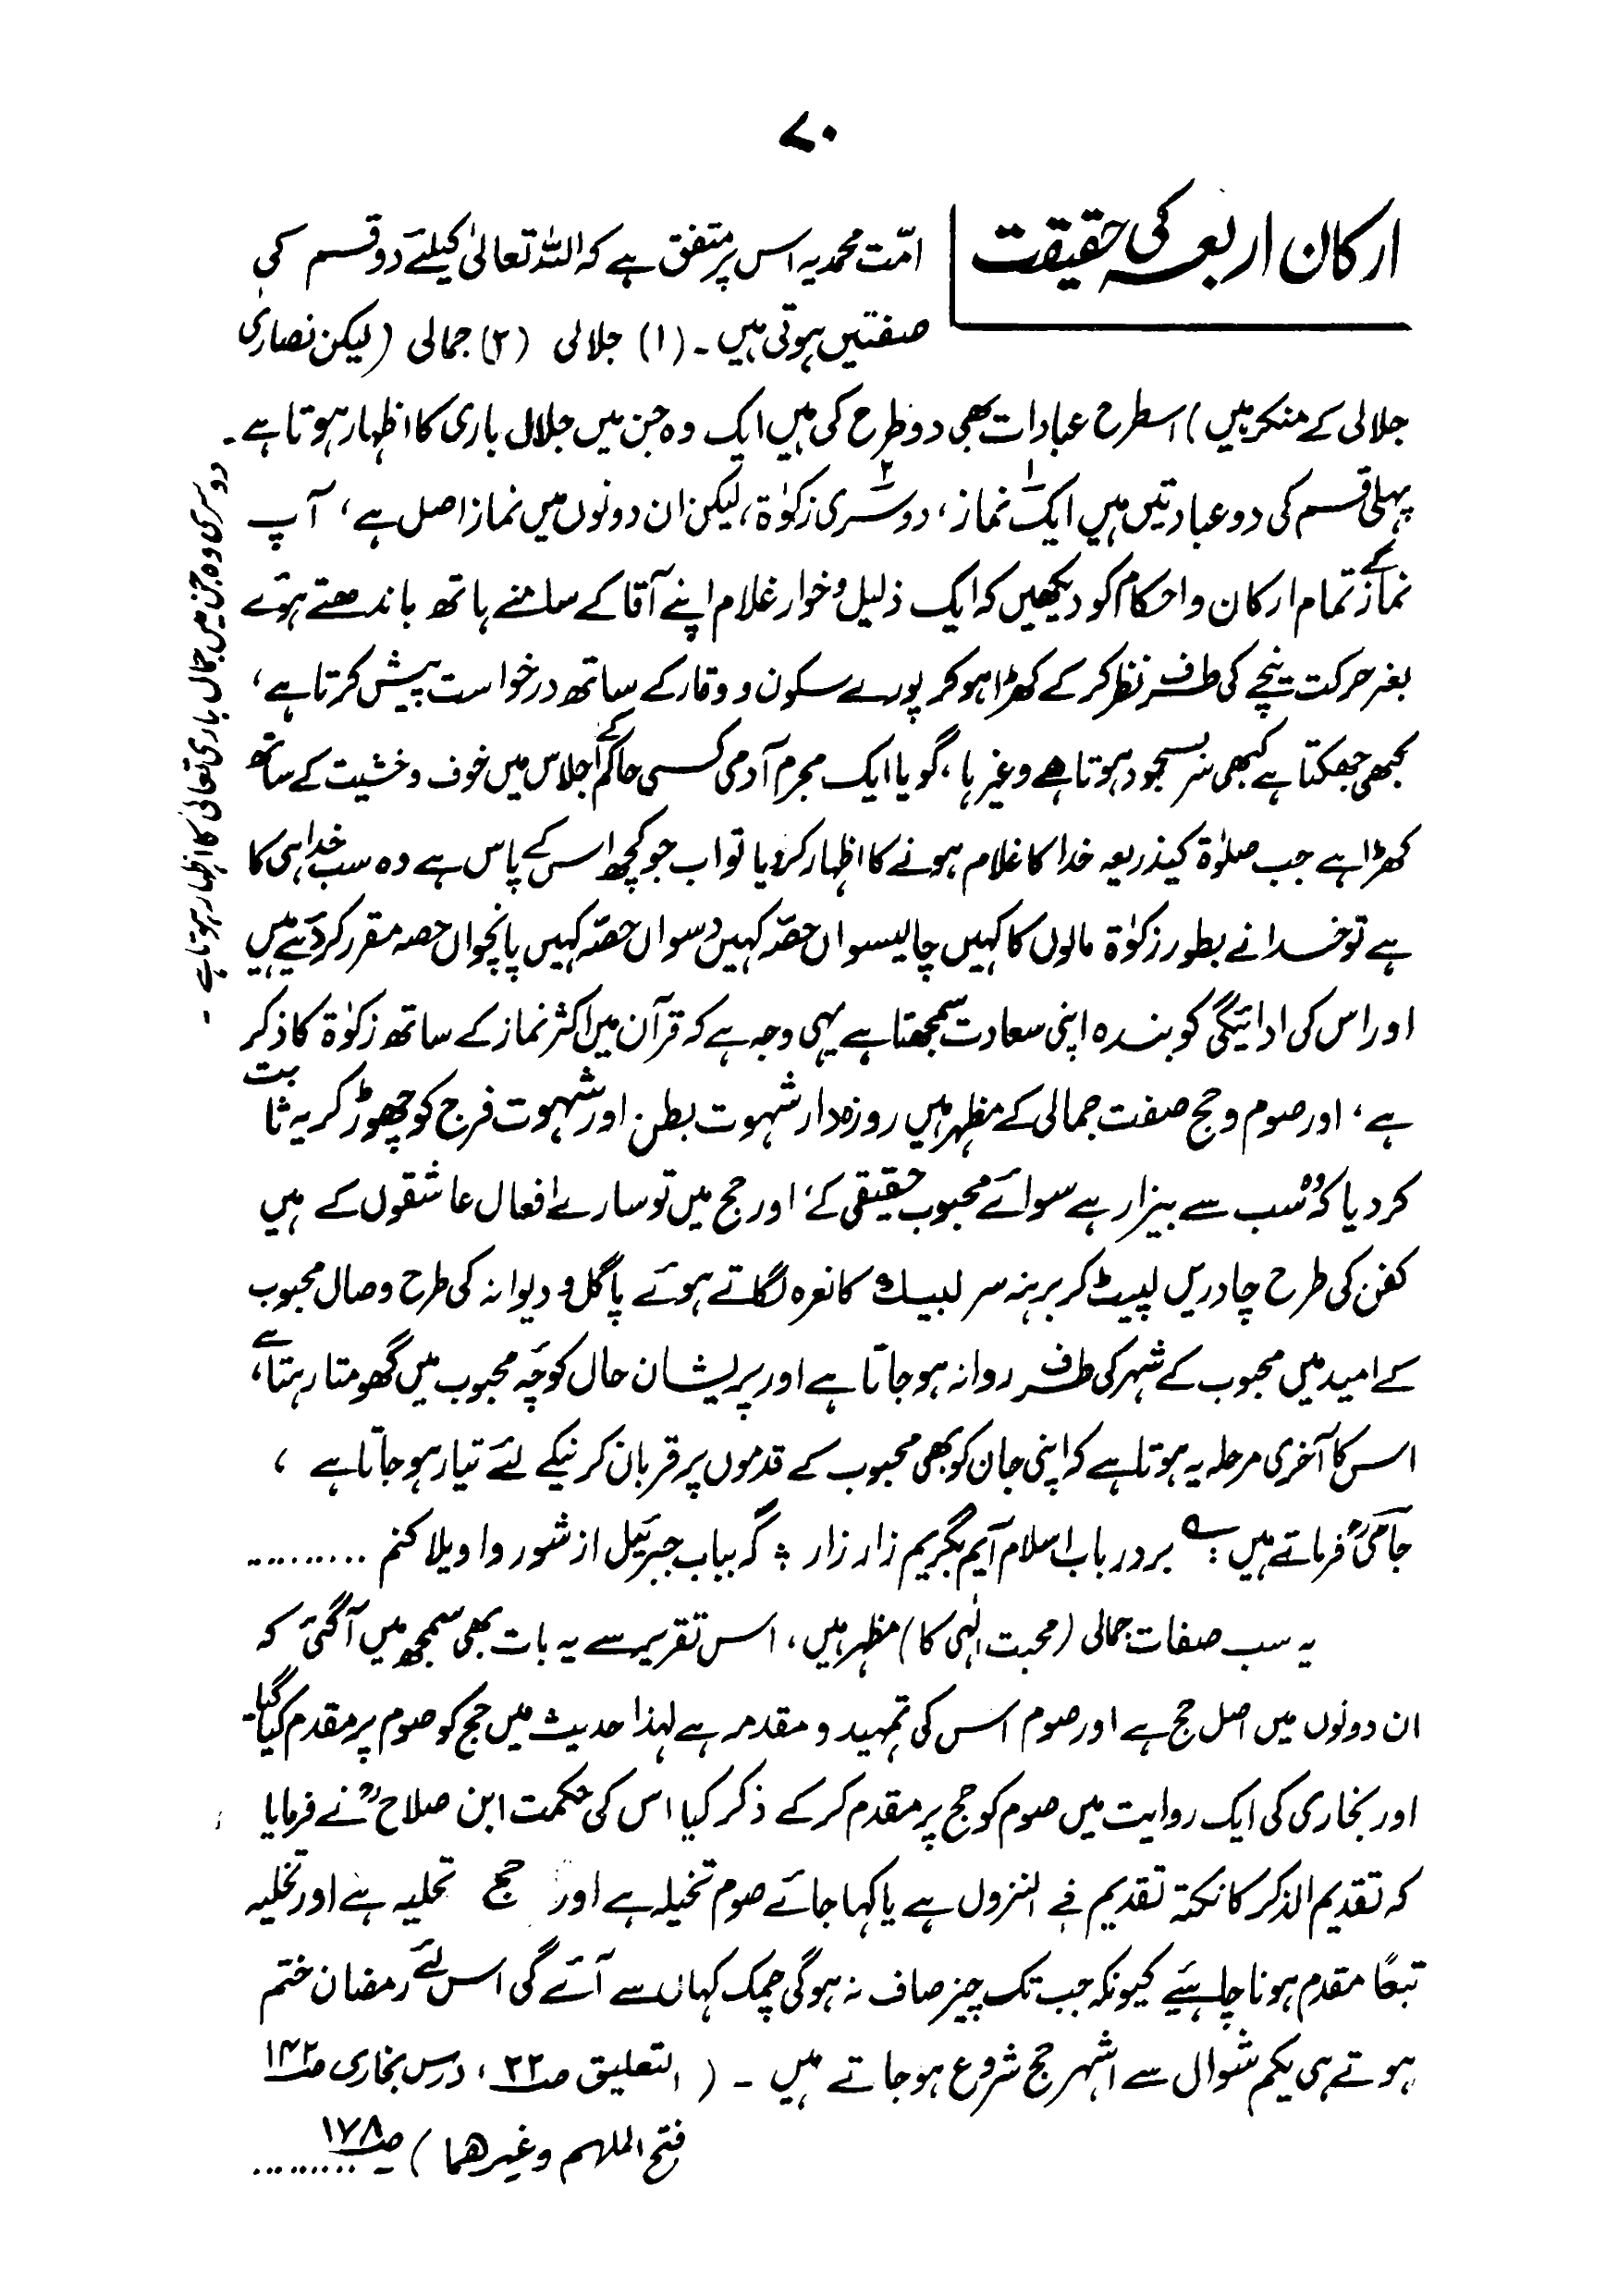 ۷۰
ارکان اربعہ کی حقیقت
امّت محمدیہ اس پر متفق ہے کہ اللہ تعالیٰ کیلئے دو قسم کی
صفتیں ہوتی ہیں۔ (۱) جلالی (۲) جمالی (لیکن نصاریٰ
جلالی کے منکر ہیں) اسطرح عبادات بھی دو طرح کی ہیں ایک وہ جن میں جلال باری کا اظہار ہوتا ہے۔
دوسری وہ جن میں جمال باری تعالیٰ کا اظہار ہوتا ہے۔
پہلی قسم کی دو عبادتیں ہیں ایک ۱ نماز، دوسری ۲ زکوٰۃ، لیکن ان دونوں میں نماز اصل ہے، آپ
نماز کے تمام ارکان و احکام کو دیکھیں کہ ایک ذلیل و خوار غلام اپنے آقا کے سامنے ہاتھ باندھتے ہوئے
بغر حرکت نیچے کی طرف نظر کر کے کھڑا ہو کر پورے سکون و وقار کے ساتھ درخواست پیش کرتا ہے،
کبھی جھکتا ہے کبھی سر بسجود ہوتا ہے وغیرہا، گویا ایک مجرم آدمی کسی حاکم کے اجلاس میں خوف و خشیت کے ساتھ
کھڑا ہے جب صلوٰۃ کیذریعہ خدا کا غلام ہونے کا اظہار کر دیا تو اب جو کچھ اس کے پاس ہے وہ سب خدا ہی کا
ہے تو خدا نے بطور زکوٰۃ مالوں کا کہیں چالیسواں حصّہ کہیں دسواں حصّہ کہیں پانچواں حصہ مقرر کر دیئے ہیں
اور اس کی ادائیگی کو بندہ اپنی سعادت سمجھتا ہے یہی وجہ ہے کہ قرآن میں اکثر نماز کے ساتھ زکوٰۃ کا ذکر
ہے، اور صوم و حج صفت جمالی کے مظہر ہیں روزہ دار شہوت بطن اور شہوت فرج کو چھوڑ کر یہ ثابت
کر دیا کہ وہ سب سے بیزار ہے سوائے محبوب حقیقی کے، اور حج میں تو سارے افعال عاشقوں کے ہیں
کفن کی طرح چادریں لپیٹ کر برہنہ سر لبیک کا نعرہ لگاتے ہوئے پاگل و دیوانہ کی طرح وصال محبوب
کے امید میں محبوب کے شہر کی طرف روانہ ہو جاتا ہے اور پریشان حال کوچۂ محبوب میں گھومتا رہتا ہے،
اس کا آخری مرحلہ یہ ہوتا ہے کہ اپنی جان کو بھی محبوب کے قدموں پر قربان کرنیکے لئے تیار ہو جاتا ہے،
جامیؒ فرماتے ہیں : ؎ بر در باب اسلام آیم بگریم زار زار ؛ گہ بباب جبرئیل از شور واویلا کنم ..........
یہ سب صفات جمالی (محبت الٰہی کا) مظہر ہیں، اس تقریر سے یہ بات بھی سمجھ میں آگئی کہ
ان دونوں میں اصل حج ہے اور صوم اس کی تمہید و مقدمہ ہے لہذا حدیث میں حج کو صوم پر مقدم کیا گیا۔
اور بخاری کی ایک روایت میں صوم کو حج پر مقدم کر کے ذکر کیا اس کی حکمت ابن صلاحؒ نے فرمایا
کہ تقدیم الذکر کا نکتہ تقدیم فی النزول ہے یا کہا جائے صوم تخیلہ ہے اور حج تحلیہ ہے اور تخلیہ
تبعًا مقدم ہونا چاہیئے کیونکہ جب تک چیز صاف نہ ہوگی چمک کہاں سے آئے گی اس لئے رمضان ختم
ہوتے ہی یکم شوال سے اشہر حج شروع ہو جاتے ہیں۔ (التعلیق صـ۲۲، درس بخاری صـ۱۴۲
فتح الملہم وغیرھما) صـ۱۷۸ ..........